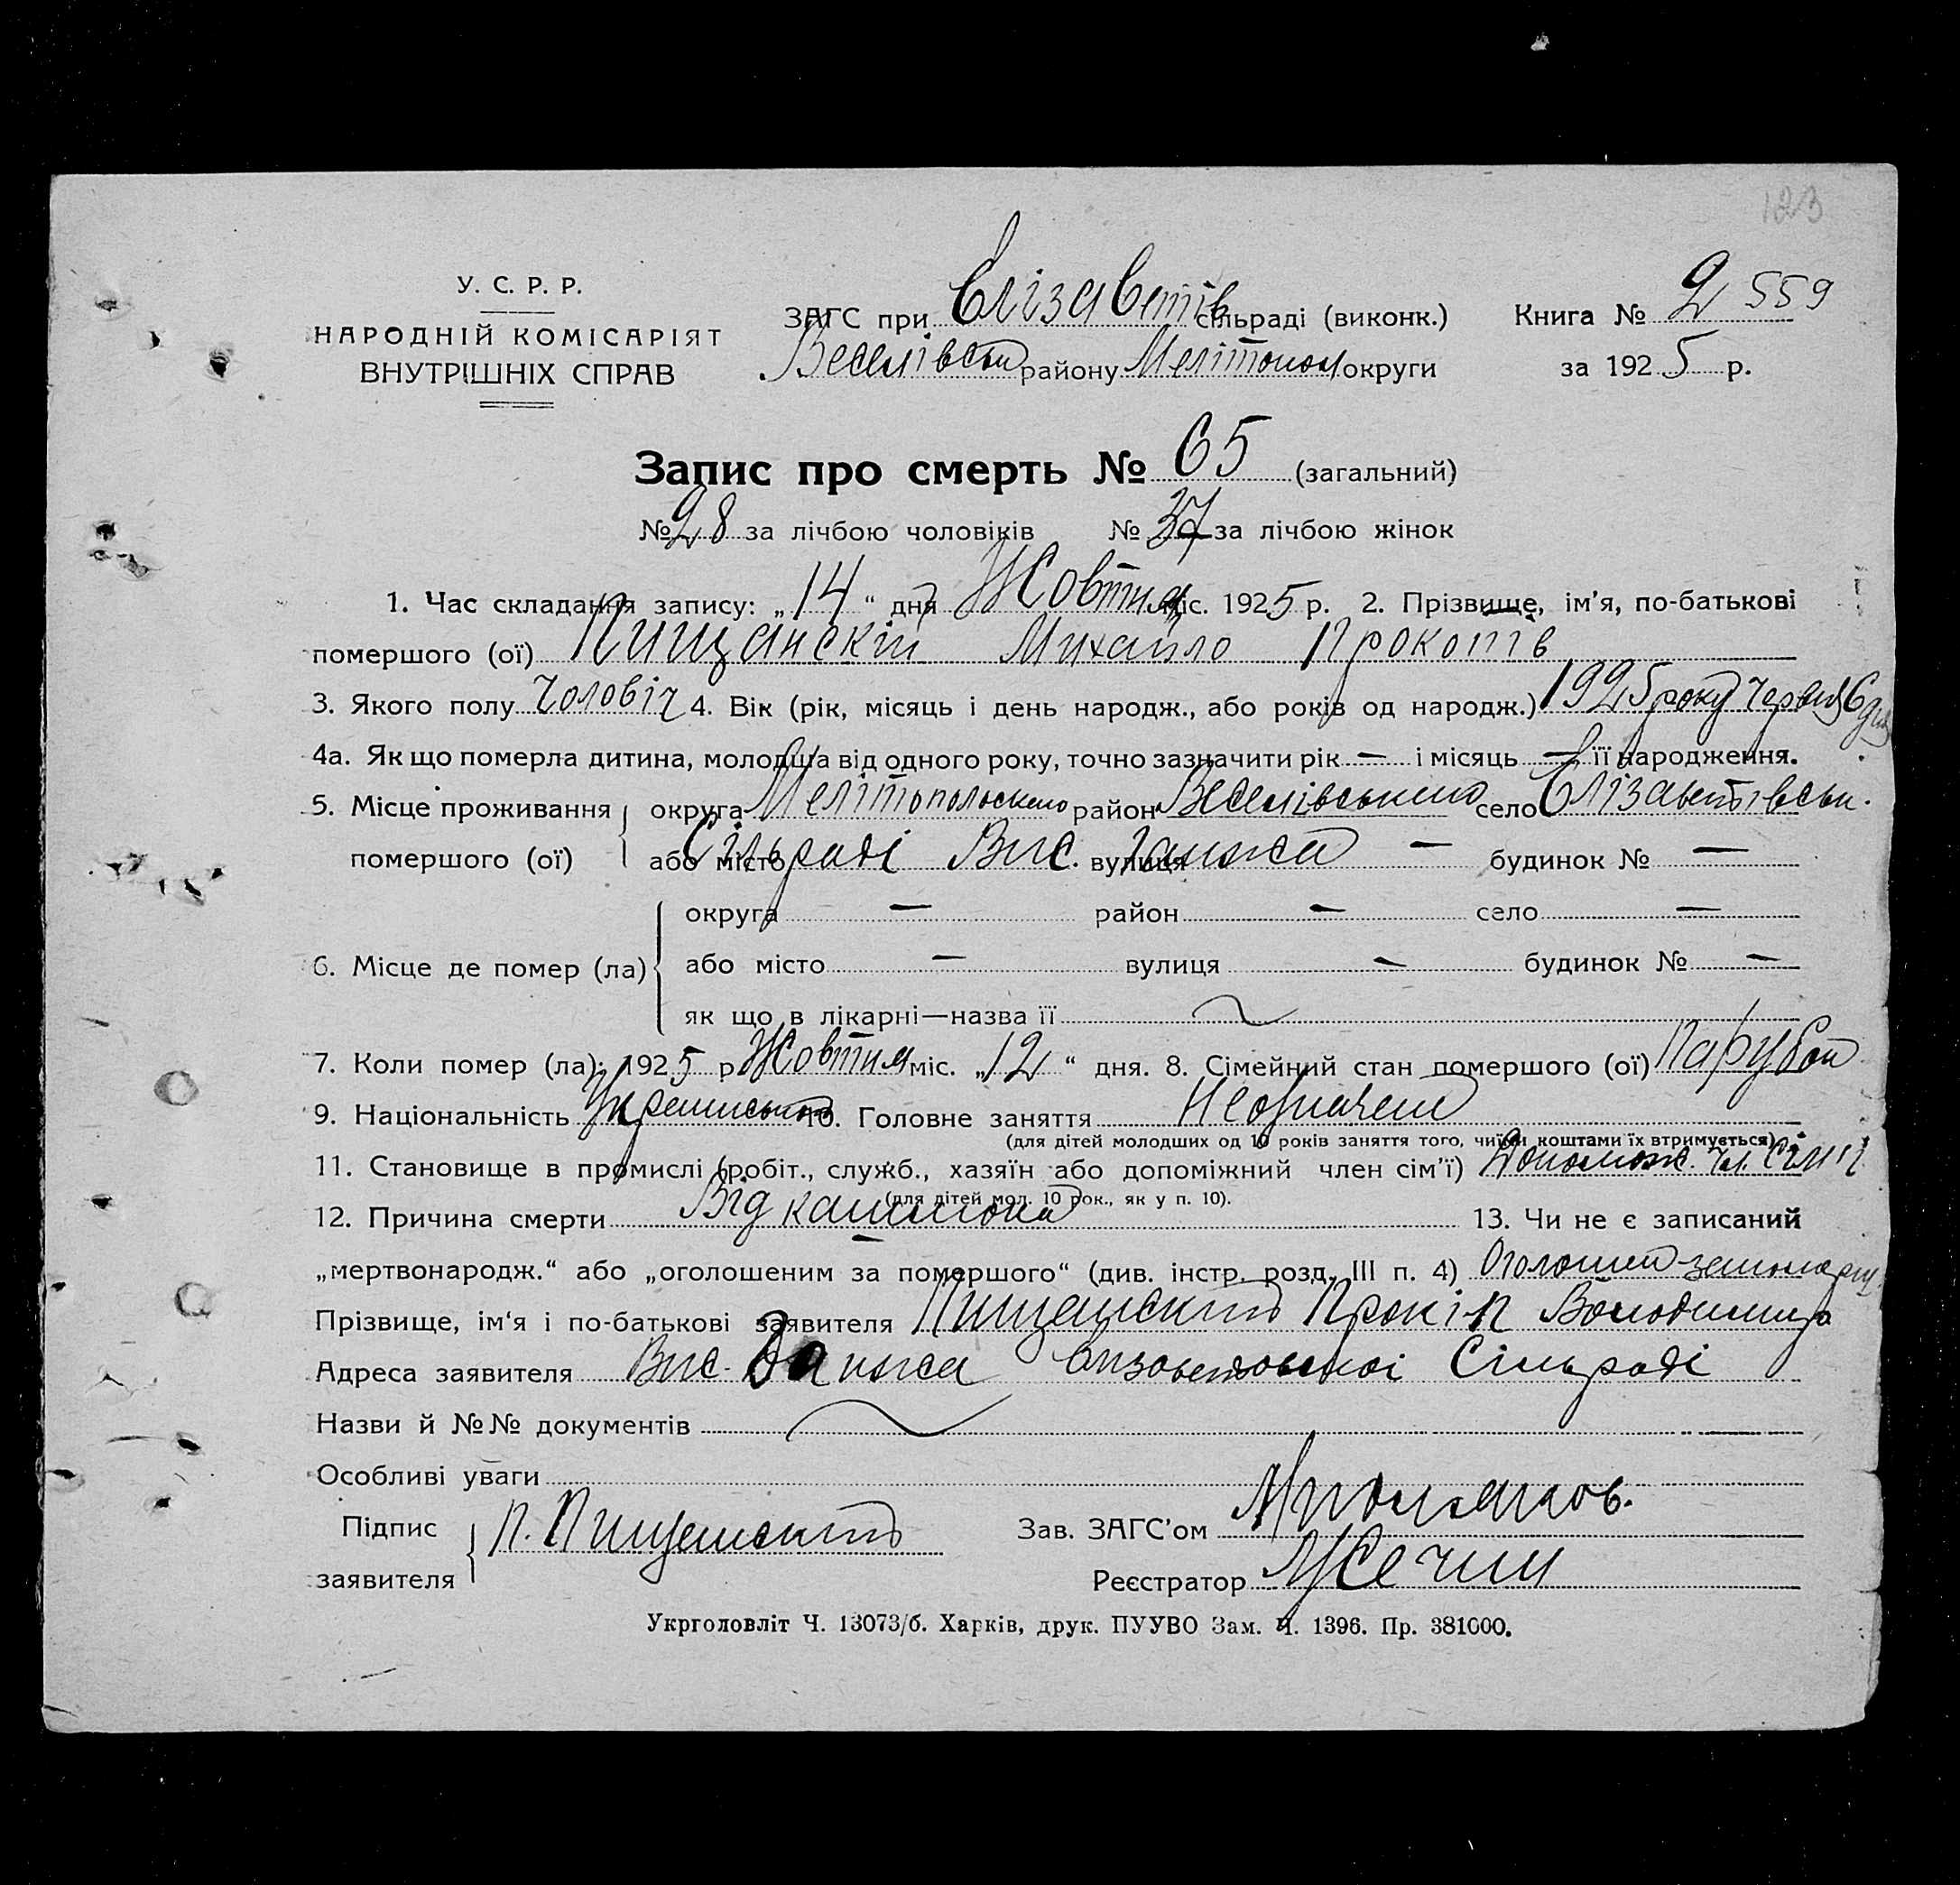 123
У. С. Р. Р.
НАРОДНІЙ КОМІСАРІЯТ
ВНУТРІШНІХ СПРАВ
ЗАГС при Єлізаветів сільраді (виконк.)
Веселівськ району Мелітопол округи
Книга № 2 559
за 1925 р.
Запис про смерть № 65 (загальний)
№ 28 за лічбою чоловіків № 37 за лічбою жінок
1. Час складання запису: „14“ дня Жовтня міс. 1925 р. 2. Прізвище, ім’я, по-батькові
помершого (ої) Пищанскій Михайло Прокопів
3. Якого полу Чоловіч 4. Вік (рік, місяць і день народж., або років од народж.) 1925 року Червня 6 дня
4а. Як що померла дитина, молодша від одного року, точно зазначити рік — і місяць — її народження.
5. Місце проживання помершого (ої) округа Мелітопольского район Веселівського село Єлізаветівськ.
або місто Сільраді Вис. вулиця — будинок № —
6. Місце де помер (ла) округа — район — село —
або місто — вулиця — будинок № —
як що в лікарні—назва її
7. Коли помер (ла): 1925 р Жовтня міс. „12“ дня. 8. Сімейний стан помершого (ої) Парубок
9. Національність 10. Головне заняття
(для дітей молодших од 10 років заняття того, чиїми коштами їх втримується)
11. Становище в промислі (робіт., служб., хазяїн або допоміжний член сім’ї) Допоміж. чл. сімї
(для дітей мол. 10 рок., як у п. 10).
12. Причина смерти Від 13. Чи не є записаний
„мертвонародж.“ або „оголошеним за помершого“ (див. інстр. розд. III п. 4)
Прізвище, ім‘я і по-батькові заявителя Пищанский Прокіп Володимир
Адреса заявителя Вис. Сільраді
Назви й №№ документів
Особливі уваги
Підпис заявителя П. Пищанский
Зав. ЗАГС’ом
Реєстратор
Укрголовліт Ч. 13073/б. Харків, друк. ПУУВО Зам. Ч. 1396. Пр. 381000.